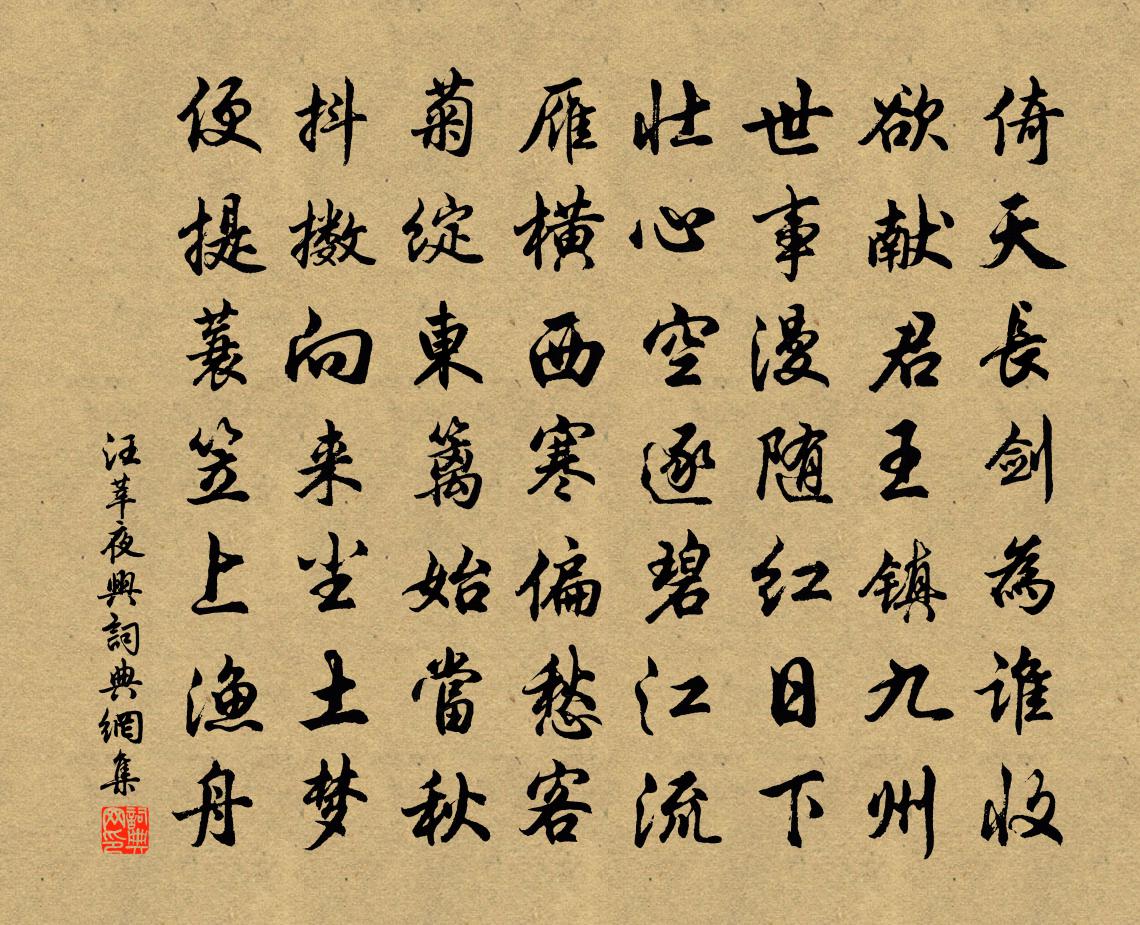 倚天长剑為谁收
欲献君王镇九州
世事漫随红日下
壮心空逐碧江流
雁横西寒偏愁客
菊绽東篱始當秋
抖擞向来尘土梦
便提蓑笠上渔舟
汪莘夜興詞典網集
詞典网印